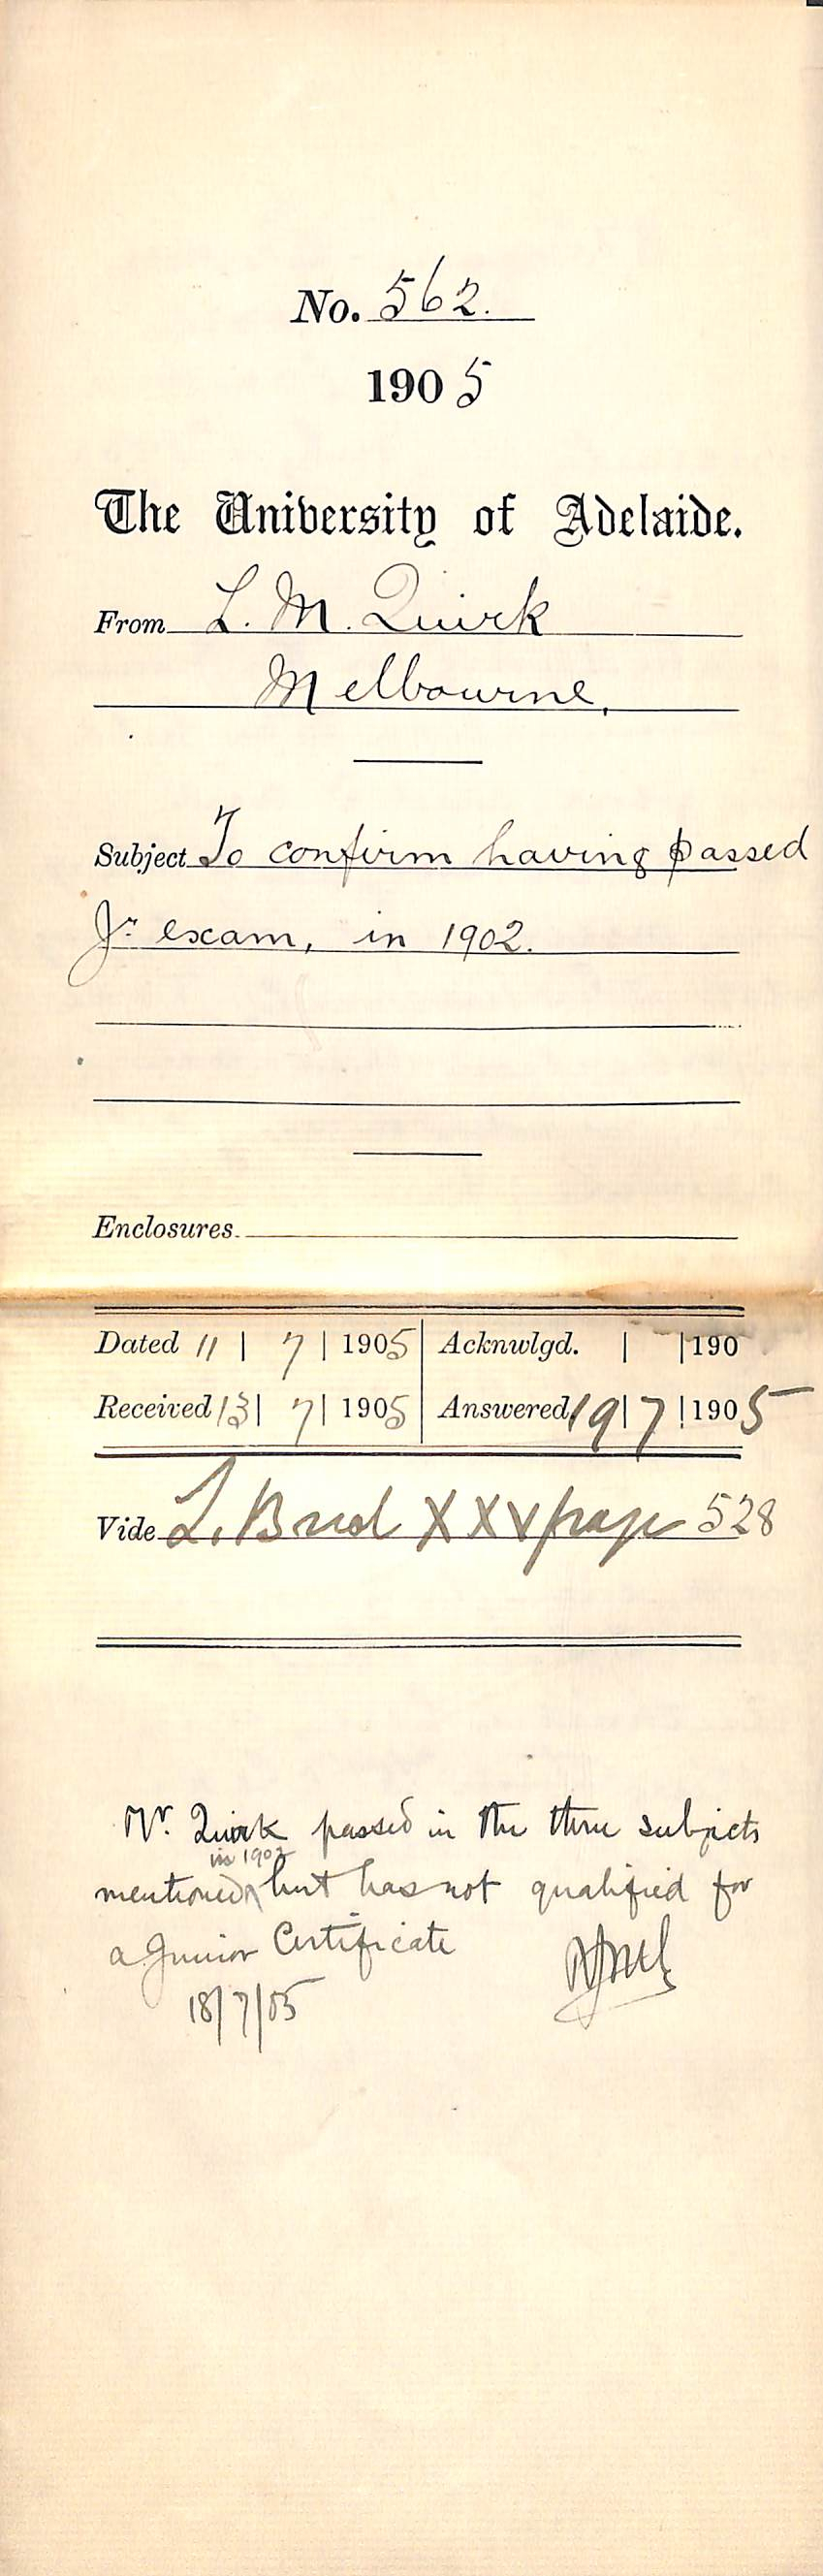 No. 562.
1905
The University of Adelaide.
From L. M. Quirk
Melbourne,
Subject To confirm having passed
Jr. exam, in 1902.
Enclosures.
Dated 11 | 7 | 1905 Acknwlgd. | | 190
Received 13 | 7 | 1905 Answered 19 | 7 | 1905
Vide L. XXV page 528
Mr. Quirk passed in the three subjects
in 1902
mentioned but has not qualified for
a Junior Certificate
18/7/05